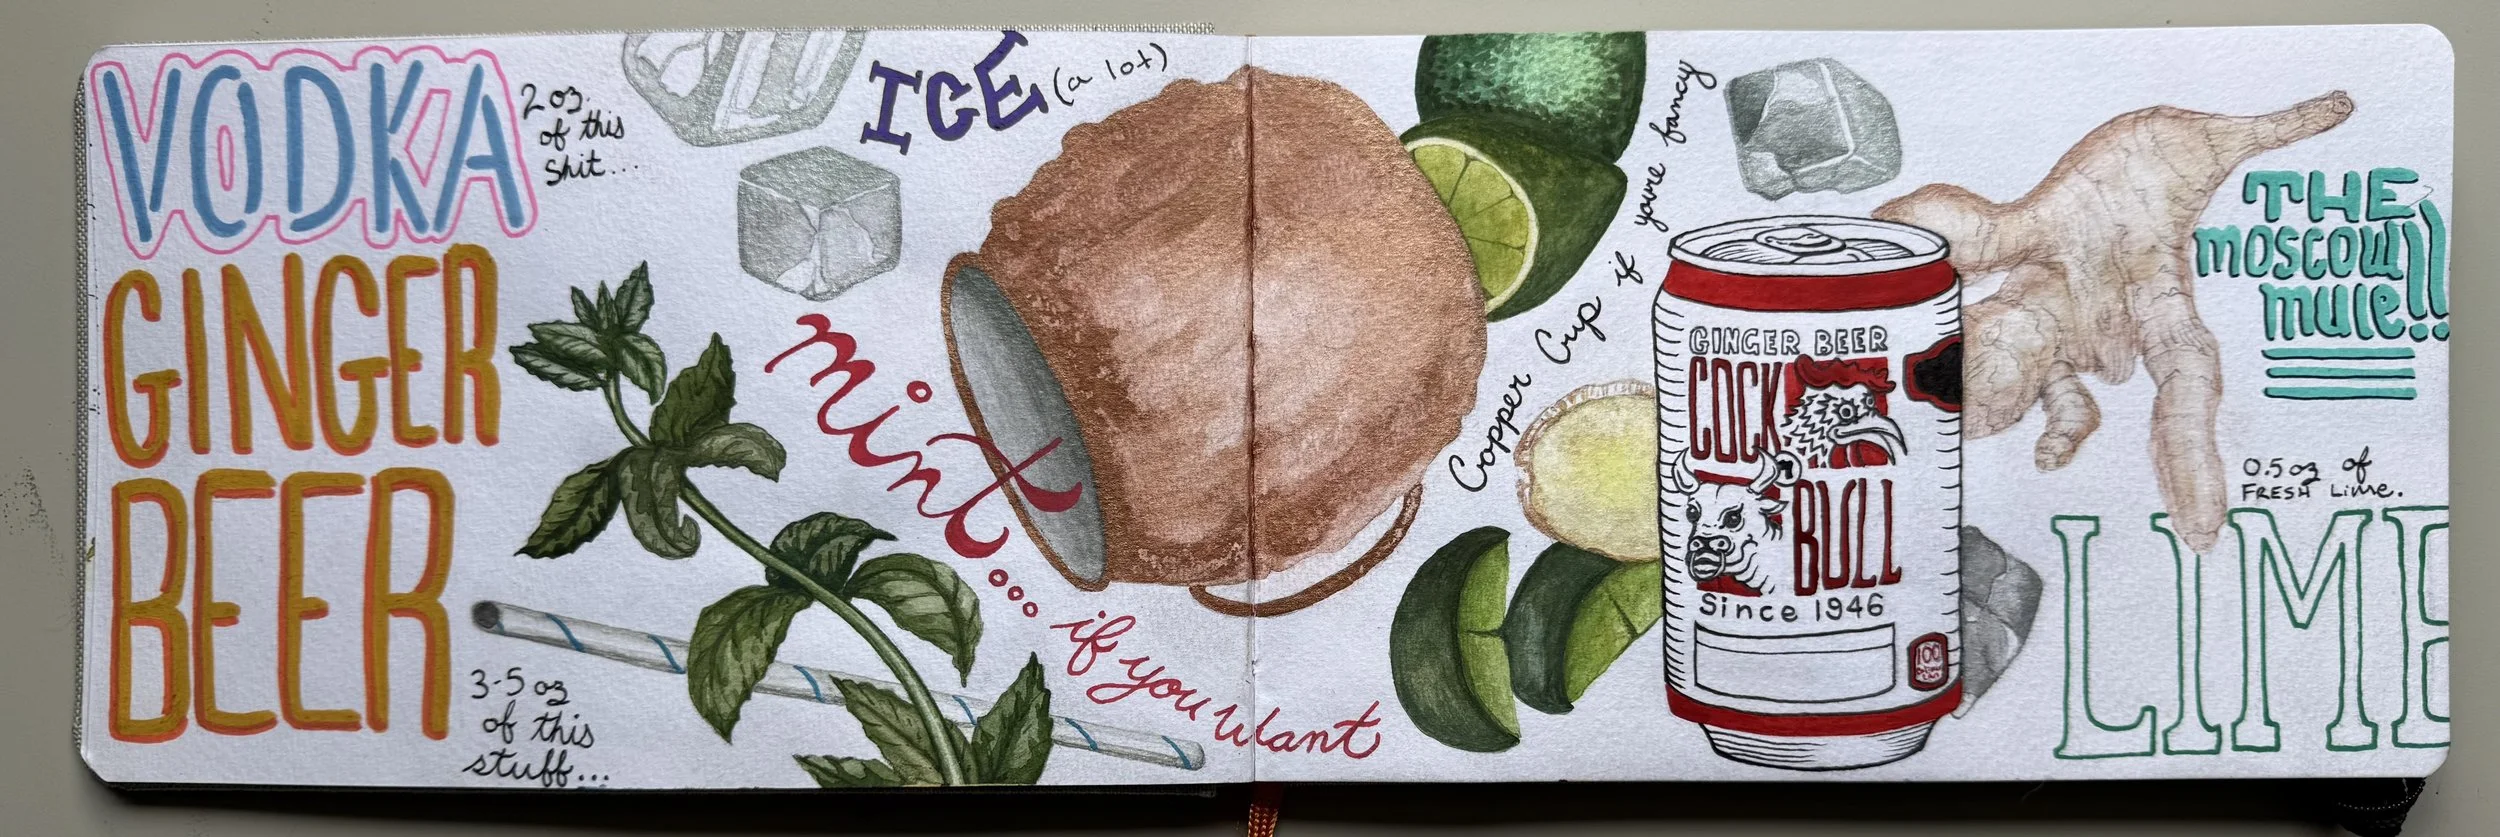 VODKA
2 oz.
of this
shit...
GINGER
BEER
3-5 oz
of this
stuff...
ICE (a lot)
mint... if you want
Copper Cup if youre fancy
GINGER BEER
COCK
BULL
Since 1946
100
THE
MOSCOW
MULE!!
0.5 oz of
FRESH Lime.
LIME